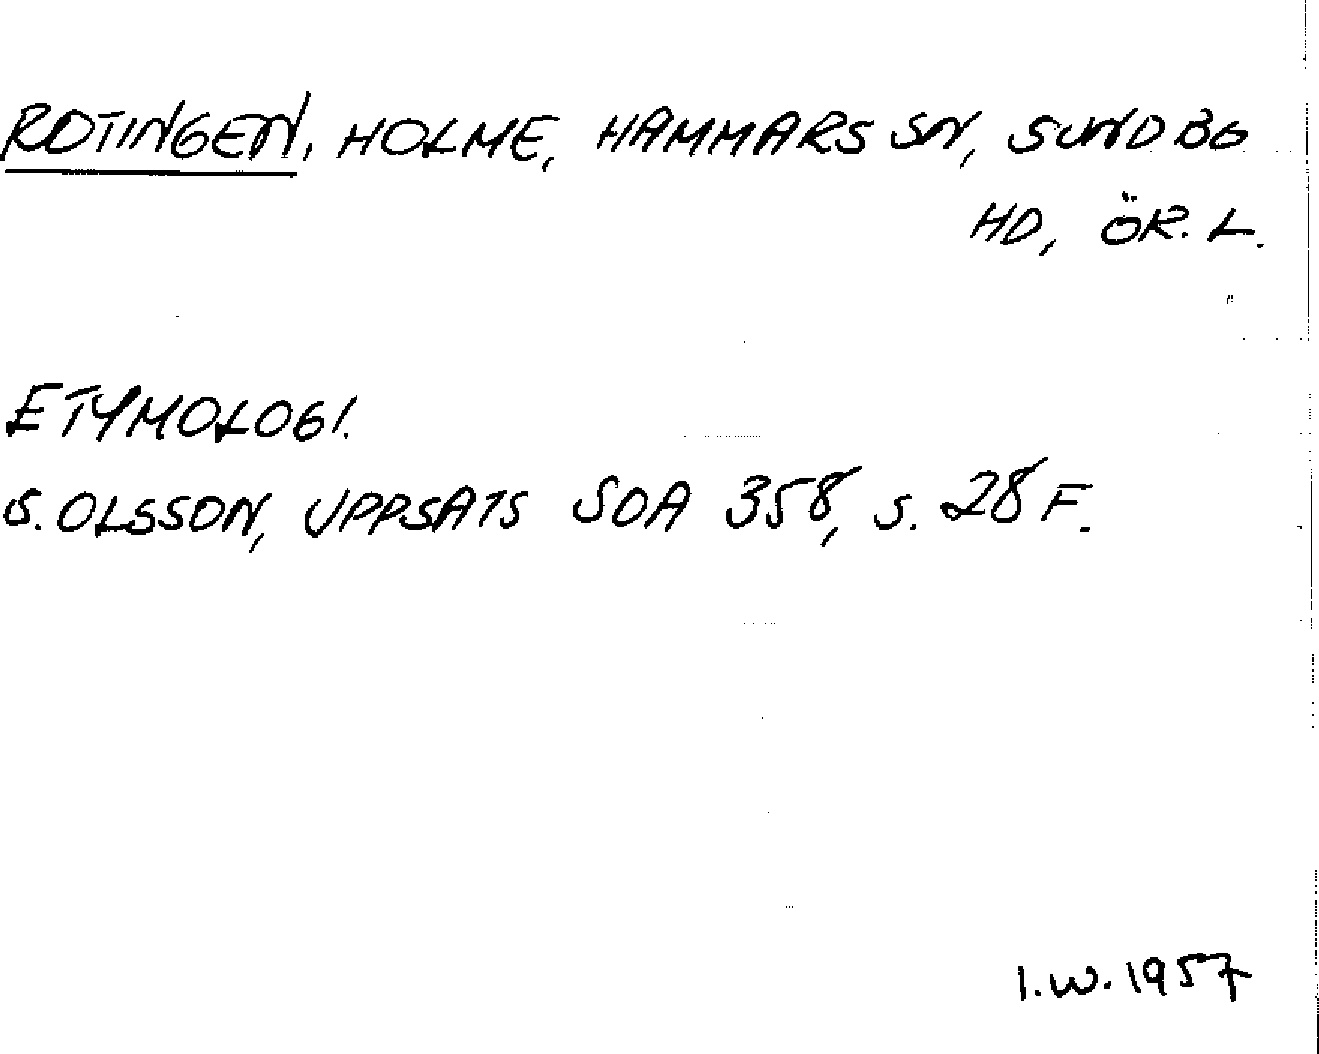 ROTINGEN, HOLME, HAMMARS SN, SUNDBO
HD, ÖR. L.
ETYMOLOGI.
S. OLSSON, UPPSATS SOA 358, S. 28 F.
I.W. 1957